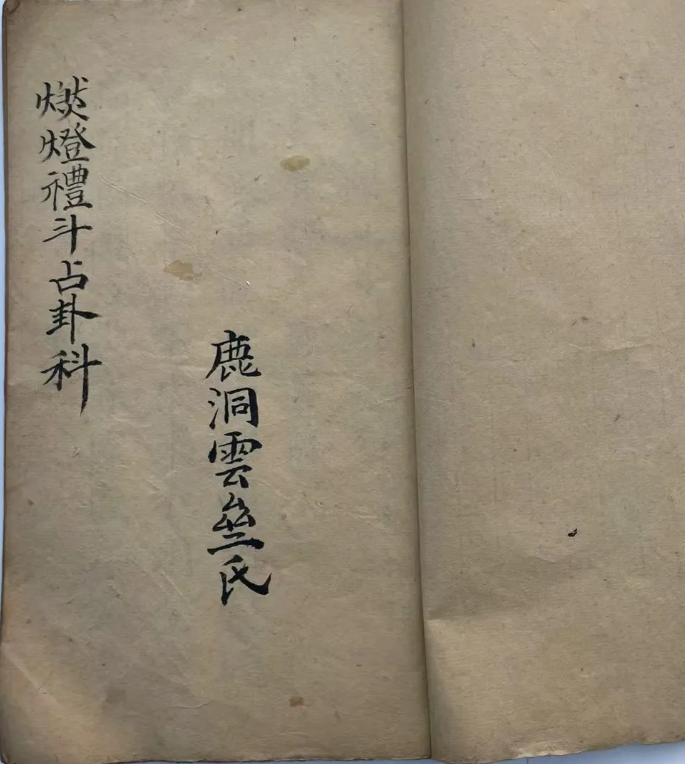 燃燈禮斗占卦科
鹿洞雲垒氏